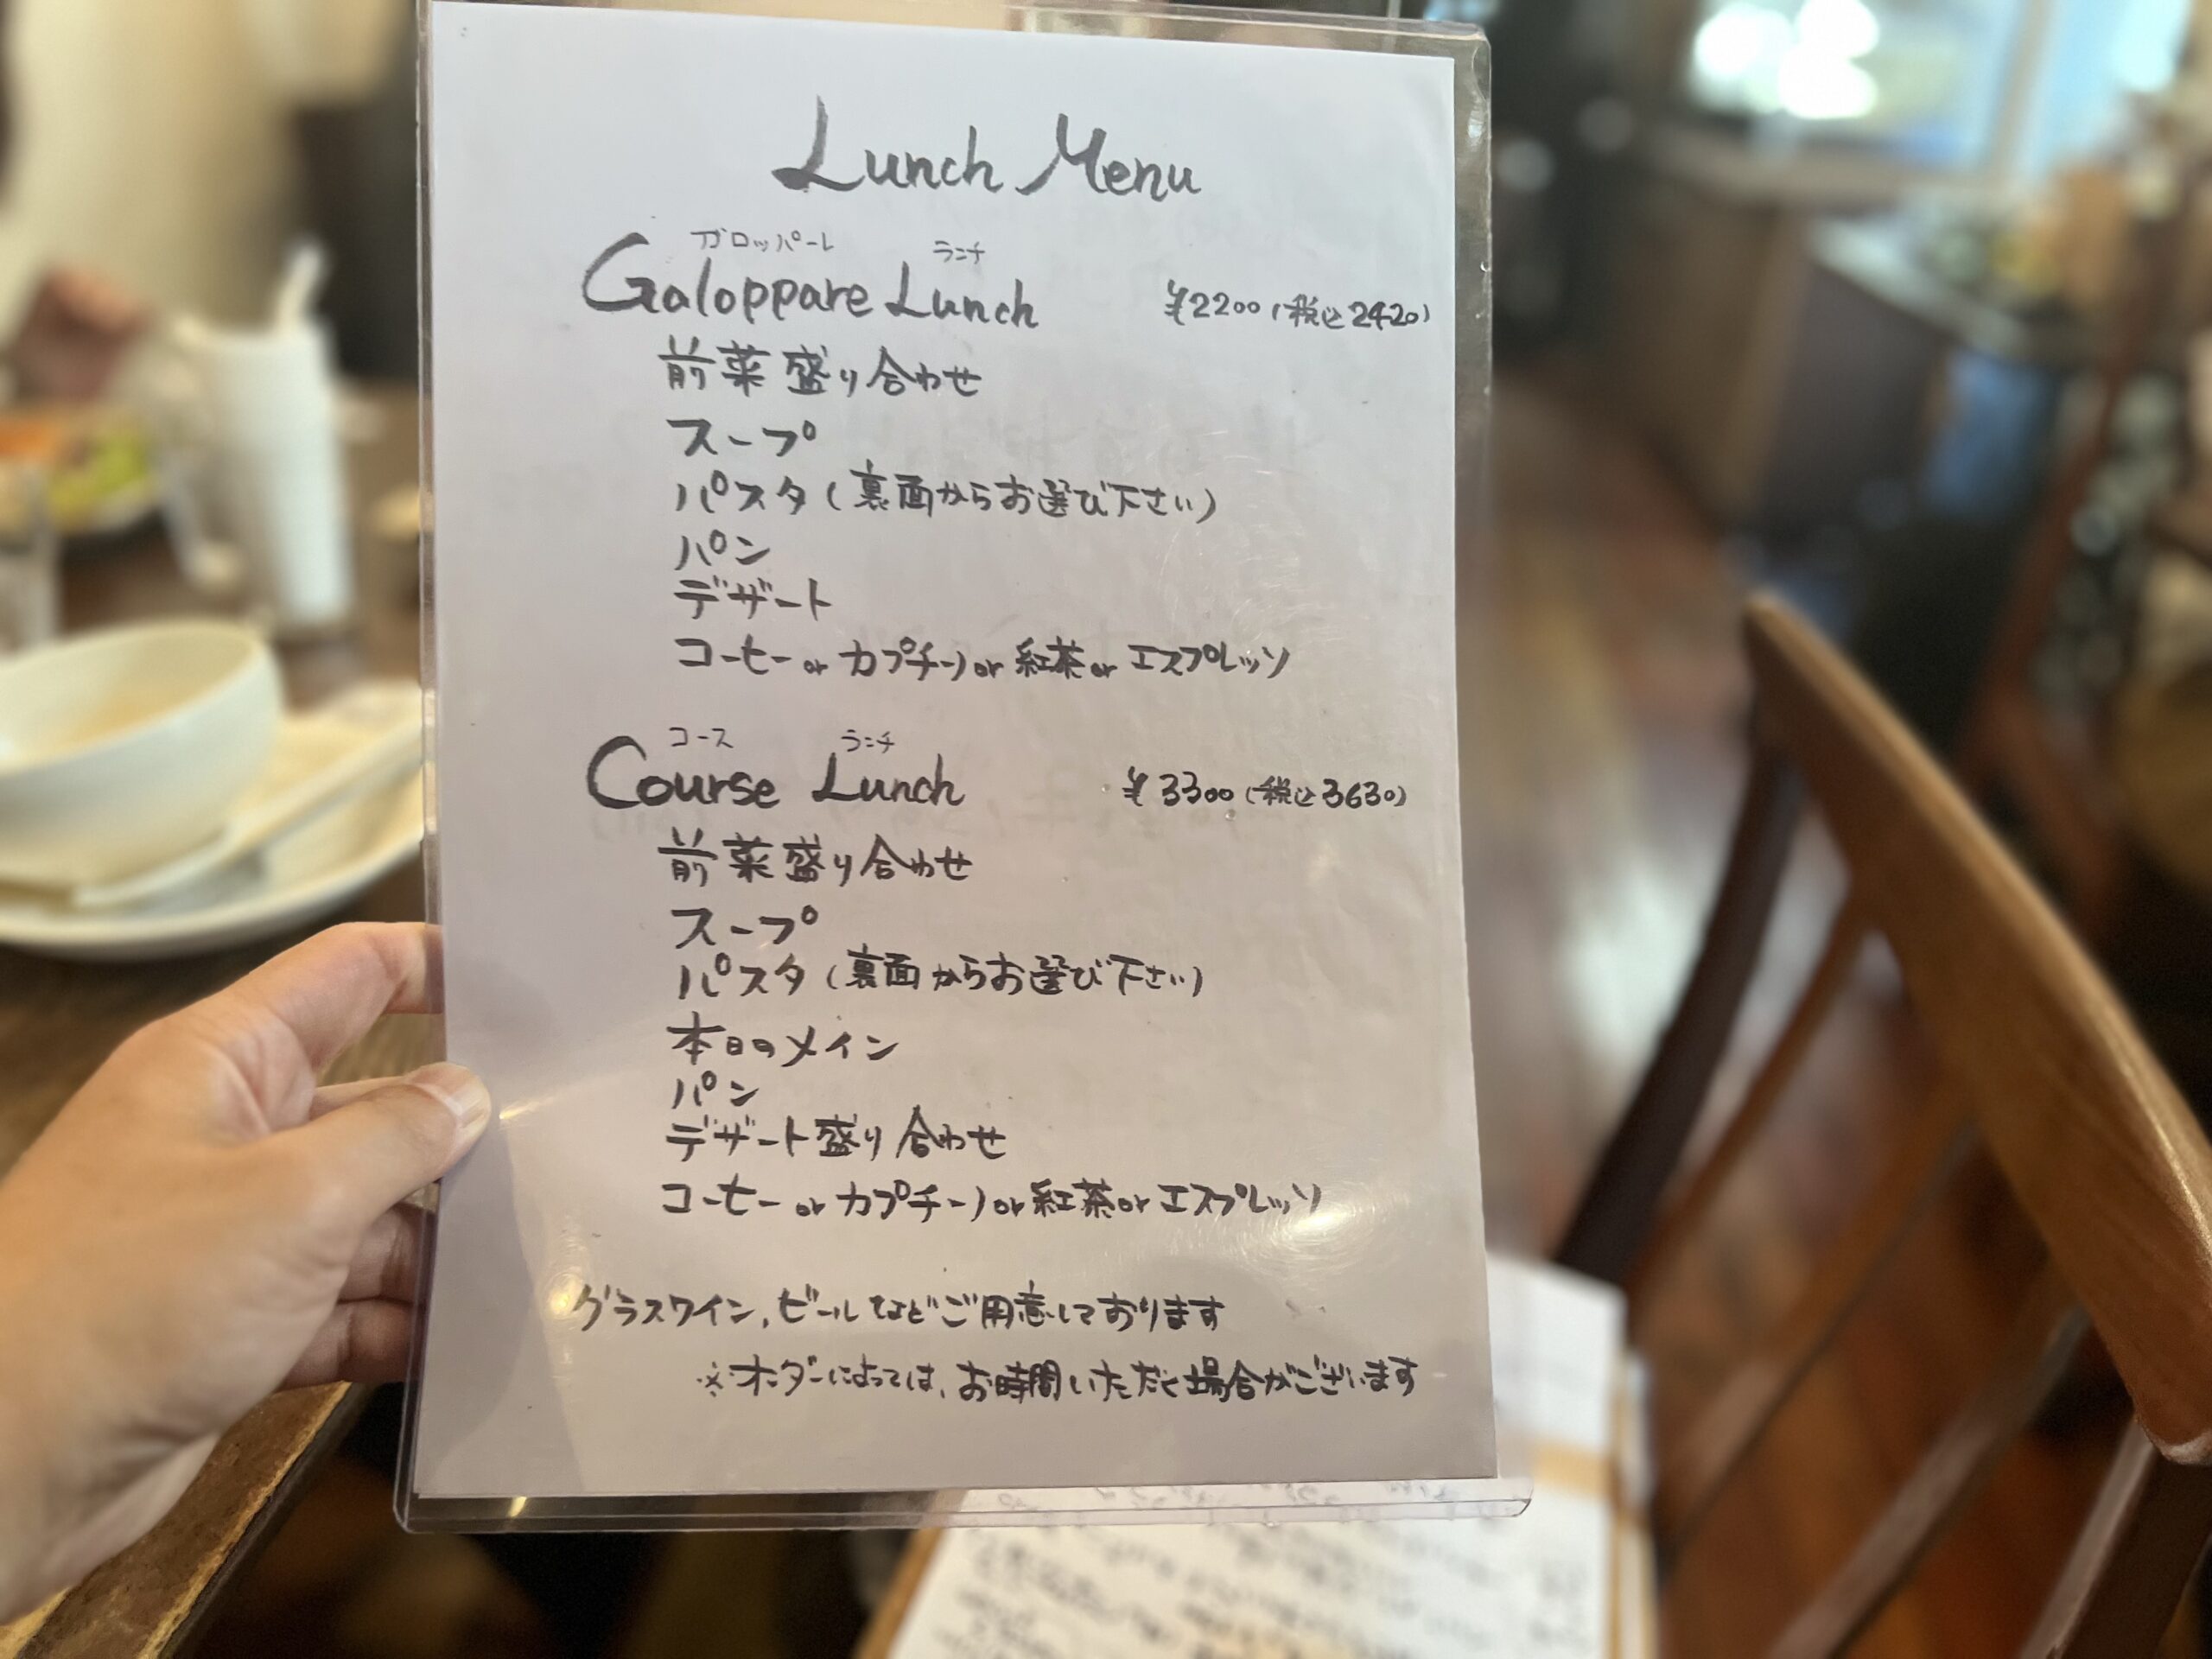 Lunch Menu
ガロッパーレ ランチ
Galoppare Lunch ¥2200(税込2420)
前菜盛り合わせ
スープ
パスタ(裏面からお選び下さい)
パン
デザート
コーヒー or カプチーノ or 紅茶 or エスプレッソ
コース ランチ
Course Lunch ¥3300(税込3630)
前菜盛り合わせ
スープ
パスタ(裏面からお選び下さい)
本日のメイン
パン
デザート盛り合わせ
コーヒー or カプチーノ or 紅茶 or エスプレッソ
グラスワイン,ビールなどご用意しております
※オーダーによっては、お時間いただく場合がございます